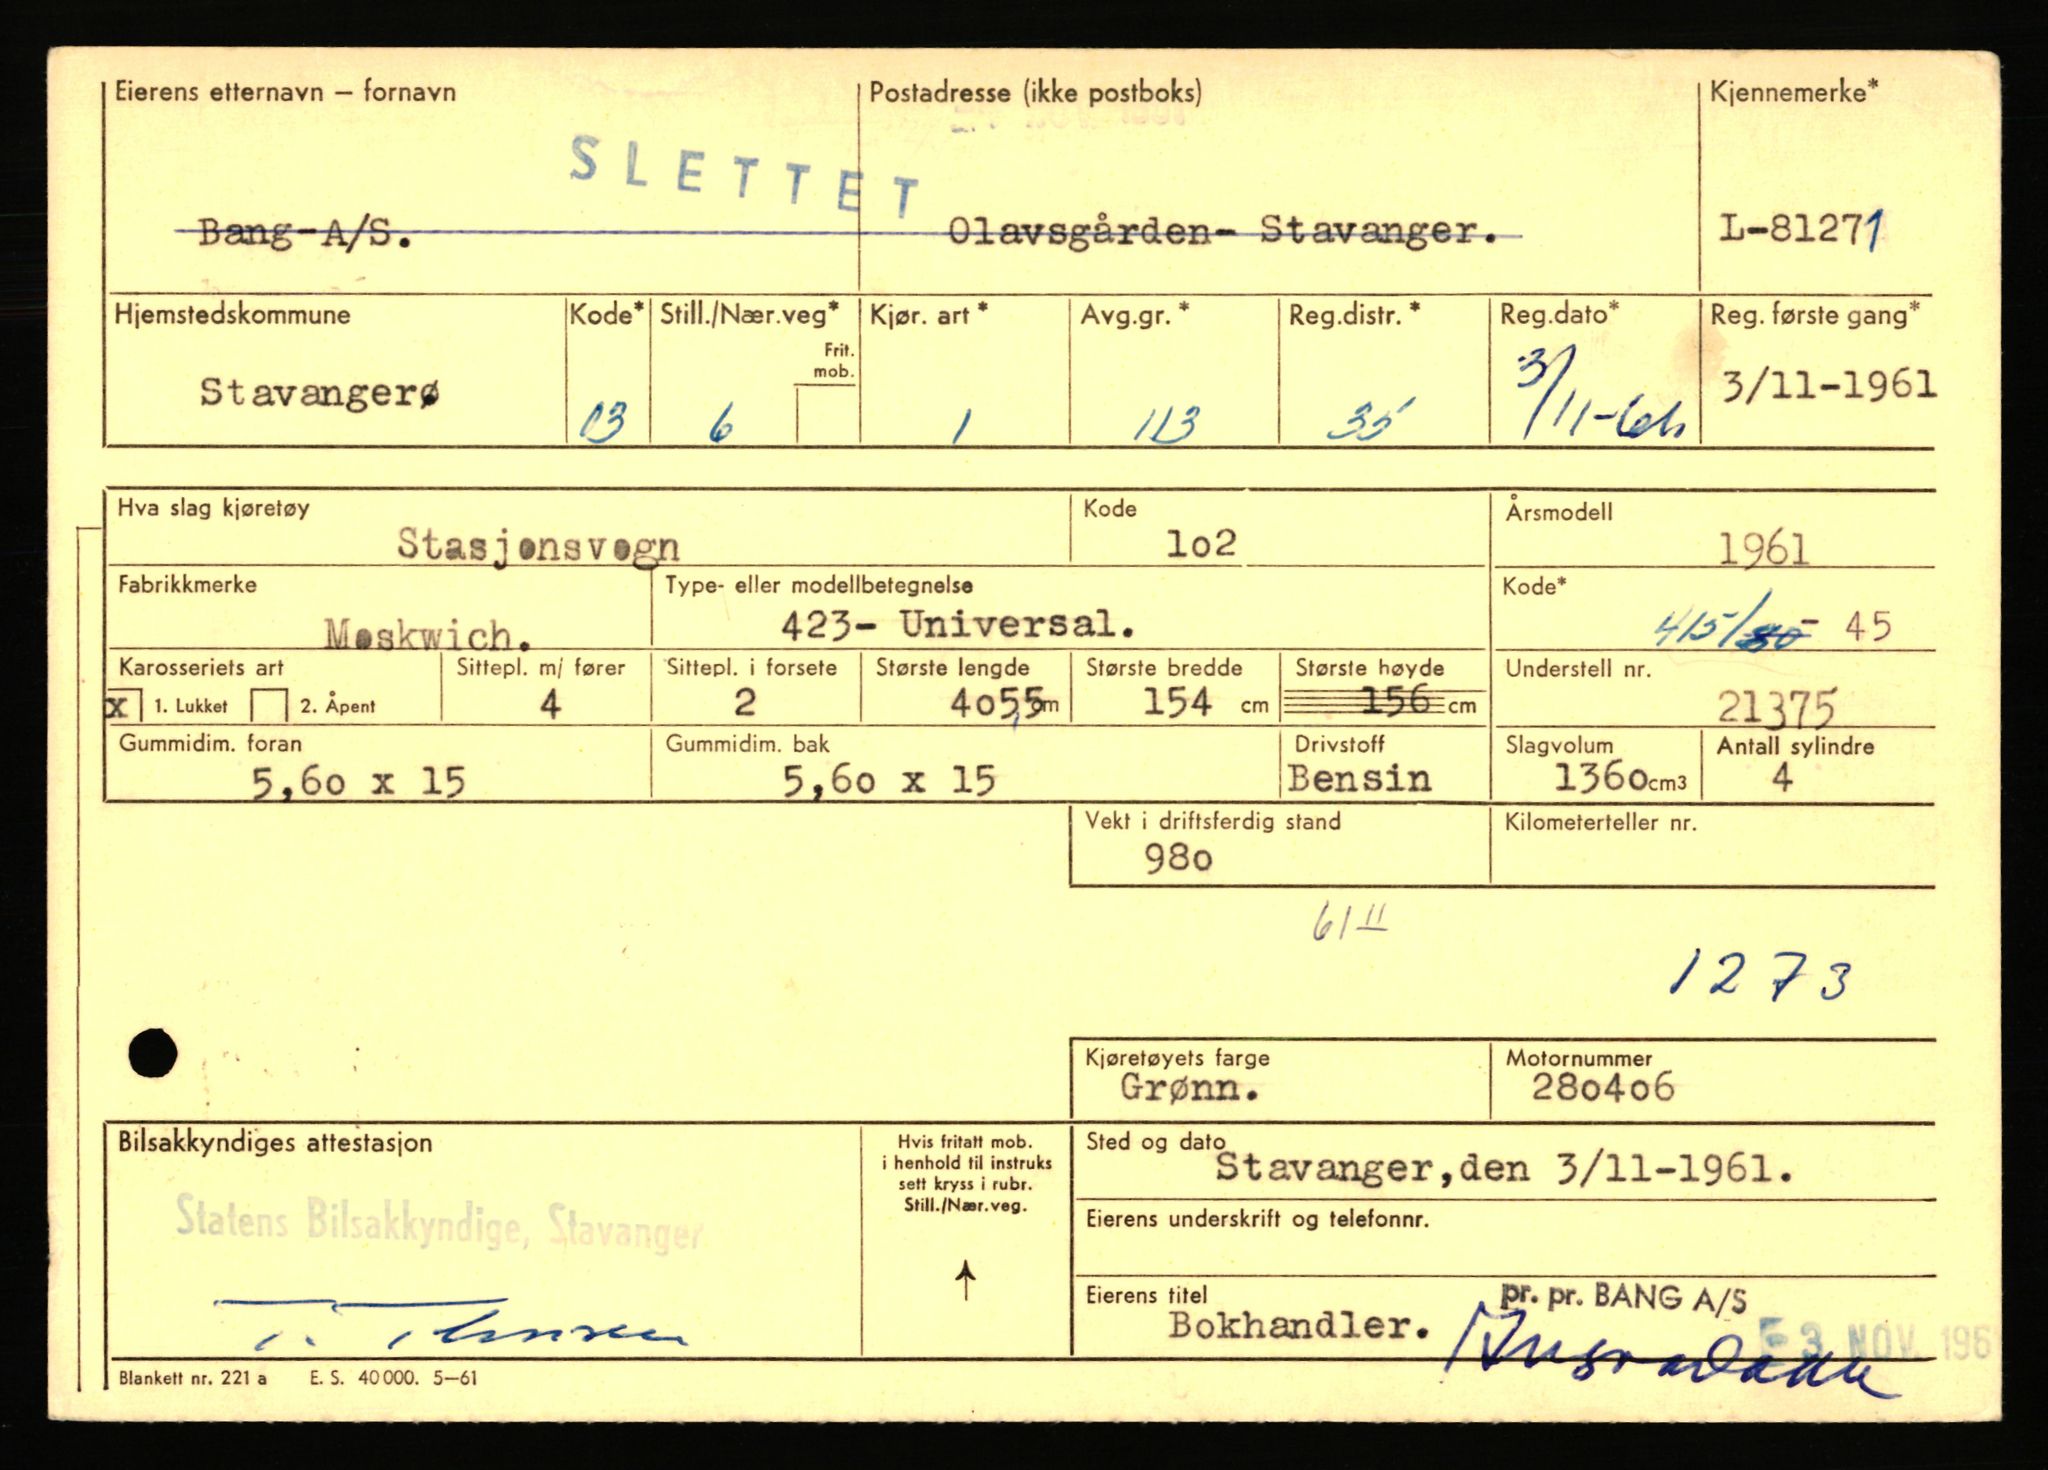 Eierens etternavn – fornavn Postadresse (ikke postboks) Kjennemerke*
SLETTET
Bang-A/S. Olavsgården- Stavanger. L-81271
Hjemstedskommune Kode* Still./Nær.veg* Kjør. art * Avg.gr. * Reg.distr. * Reg.dato* Reg. første gang*
Frit.
mob.
Stavangerø 13 6 1 113 35 3/11-61 3/11-1961
Hva slag kjøretøy Kode Årsmodell
Stasjonsvogn 1o2 1961
Fabrikkmerke Type- eller modellbetegnelse Kode*
Moskwich. 423- Universal. 415/80- 45
Karosseriets art Sittepl. m/ fører Sittepl. i forsete Største lengde Største bredde Største høyde Understell nr.
x 1. Lukket 2. Åpent 4 2 4o55 cm 154 cm 156 cm 21375
Gummidim. foran Gummidim. bak Drivstoff Slagvolum Antall sylindre
5,6o x 15 5,6o x 15 Bensin 136o cm3 4
Vekt i driftsferdig stand Kilometerteller nr.
98o
61 II
1273
Kjøretøyets farge Motornummer
Grønn. 28o4o6
Bilsakkyndiges attestasjon Hvis fritatt mob. Sted og dato
i henhold til instruks
sett kryss i rubr.
Still./Nær.veg.
Stavanger,den 3/11-1961.
Statens Bilsakkyndige, Stavanger
Eierens underskrift og telefonnr.
Eierens titel pr. pr. BANG A/S
Bokhandler.
3 NOV. 196
Blankett nr. 221 a E. S. 40 000. 5–61